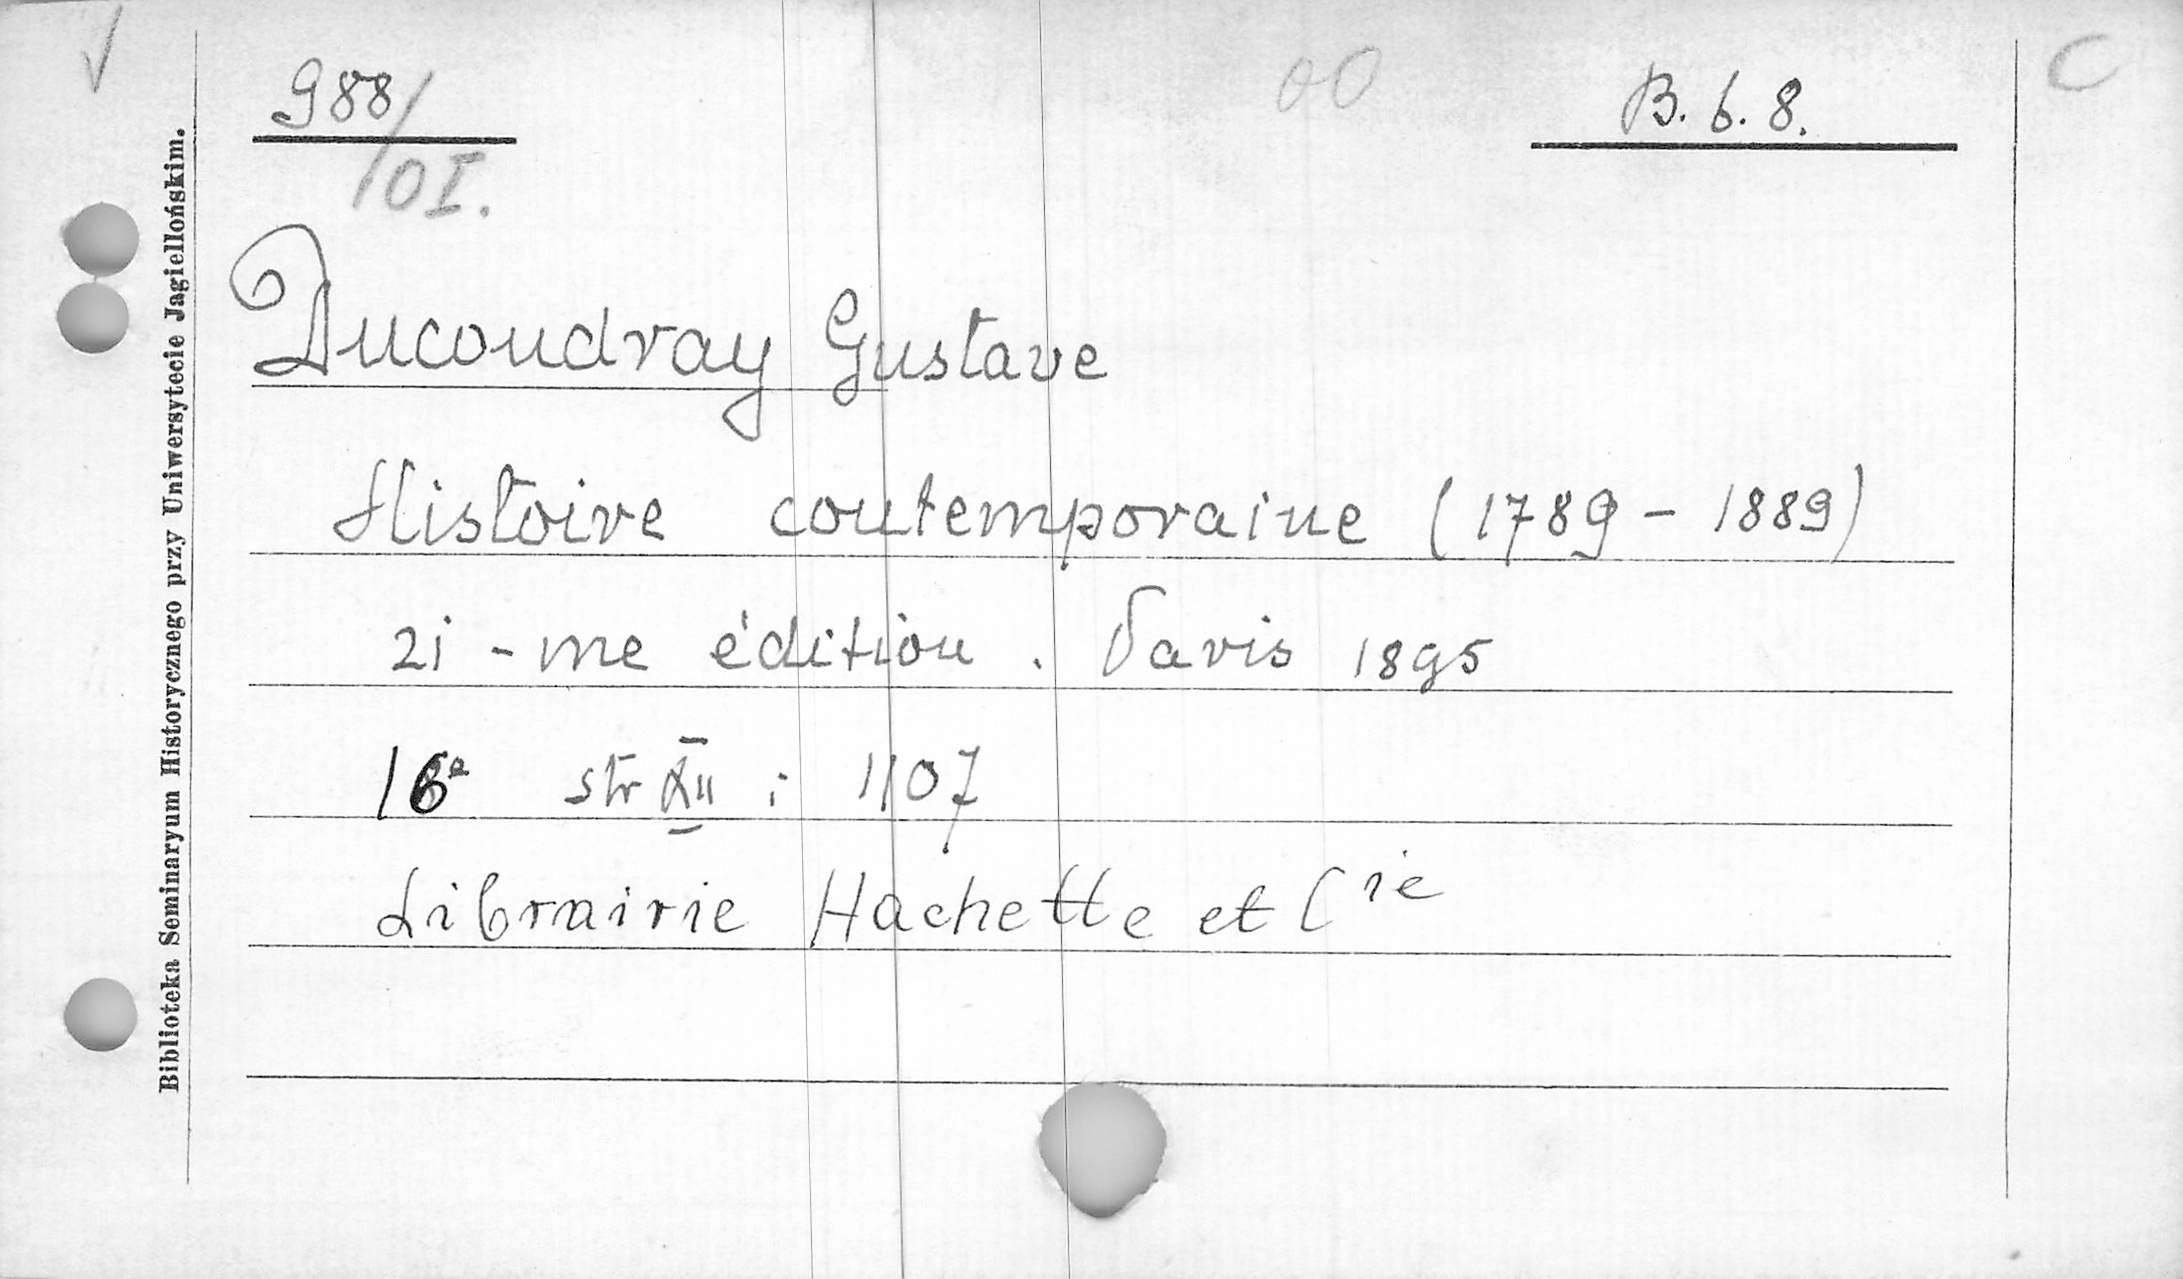 988/OI.
OO
B. 6. 8.
C
Ducoudray Gustave
Histoire contemporaine (1789 - 1889)
21 - me édition. Paris 1895
16° str XII i 1107
Librairie Hachette et Cie
Biblioteka Seminaryum Historycznego przy Uniwersytecie Jagiellońskim.